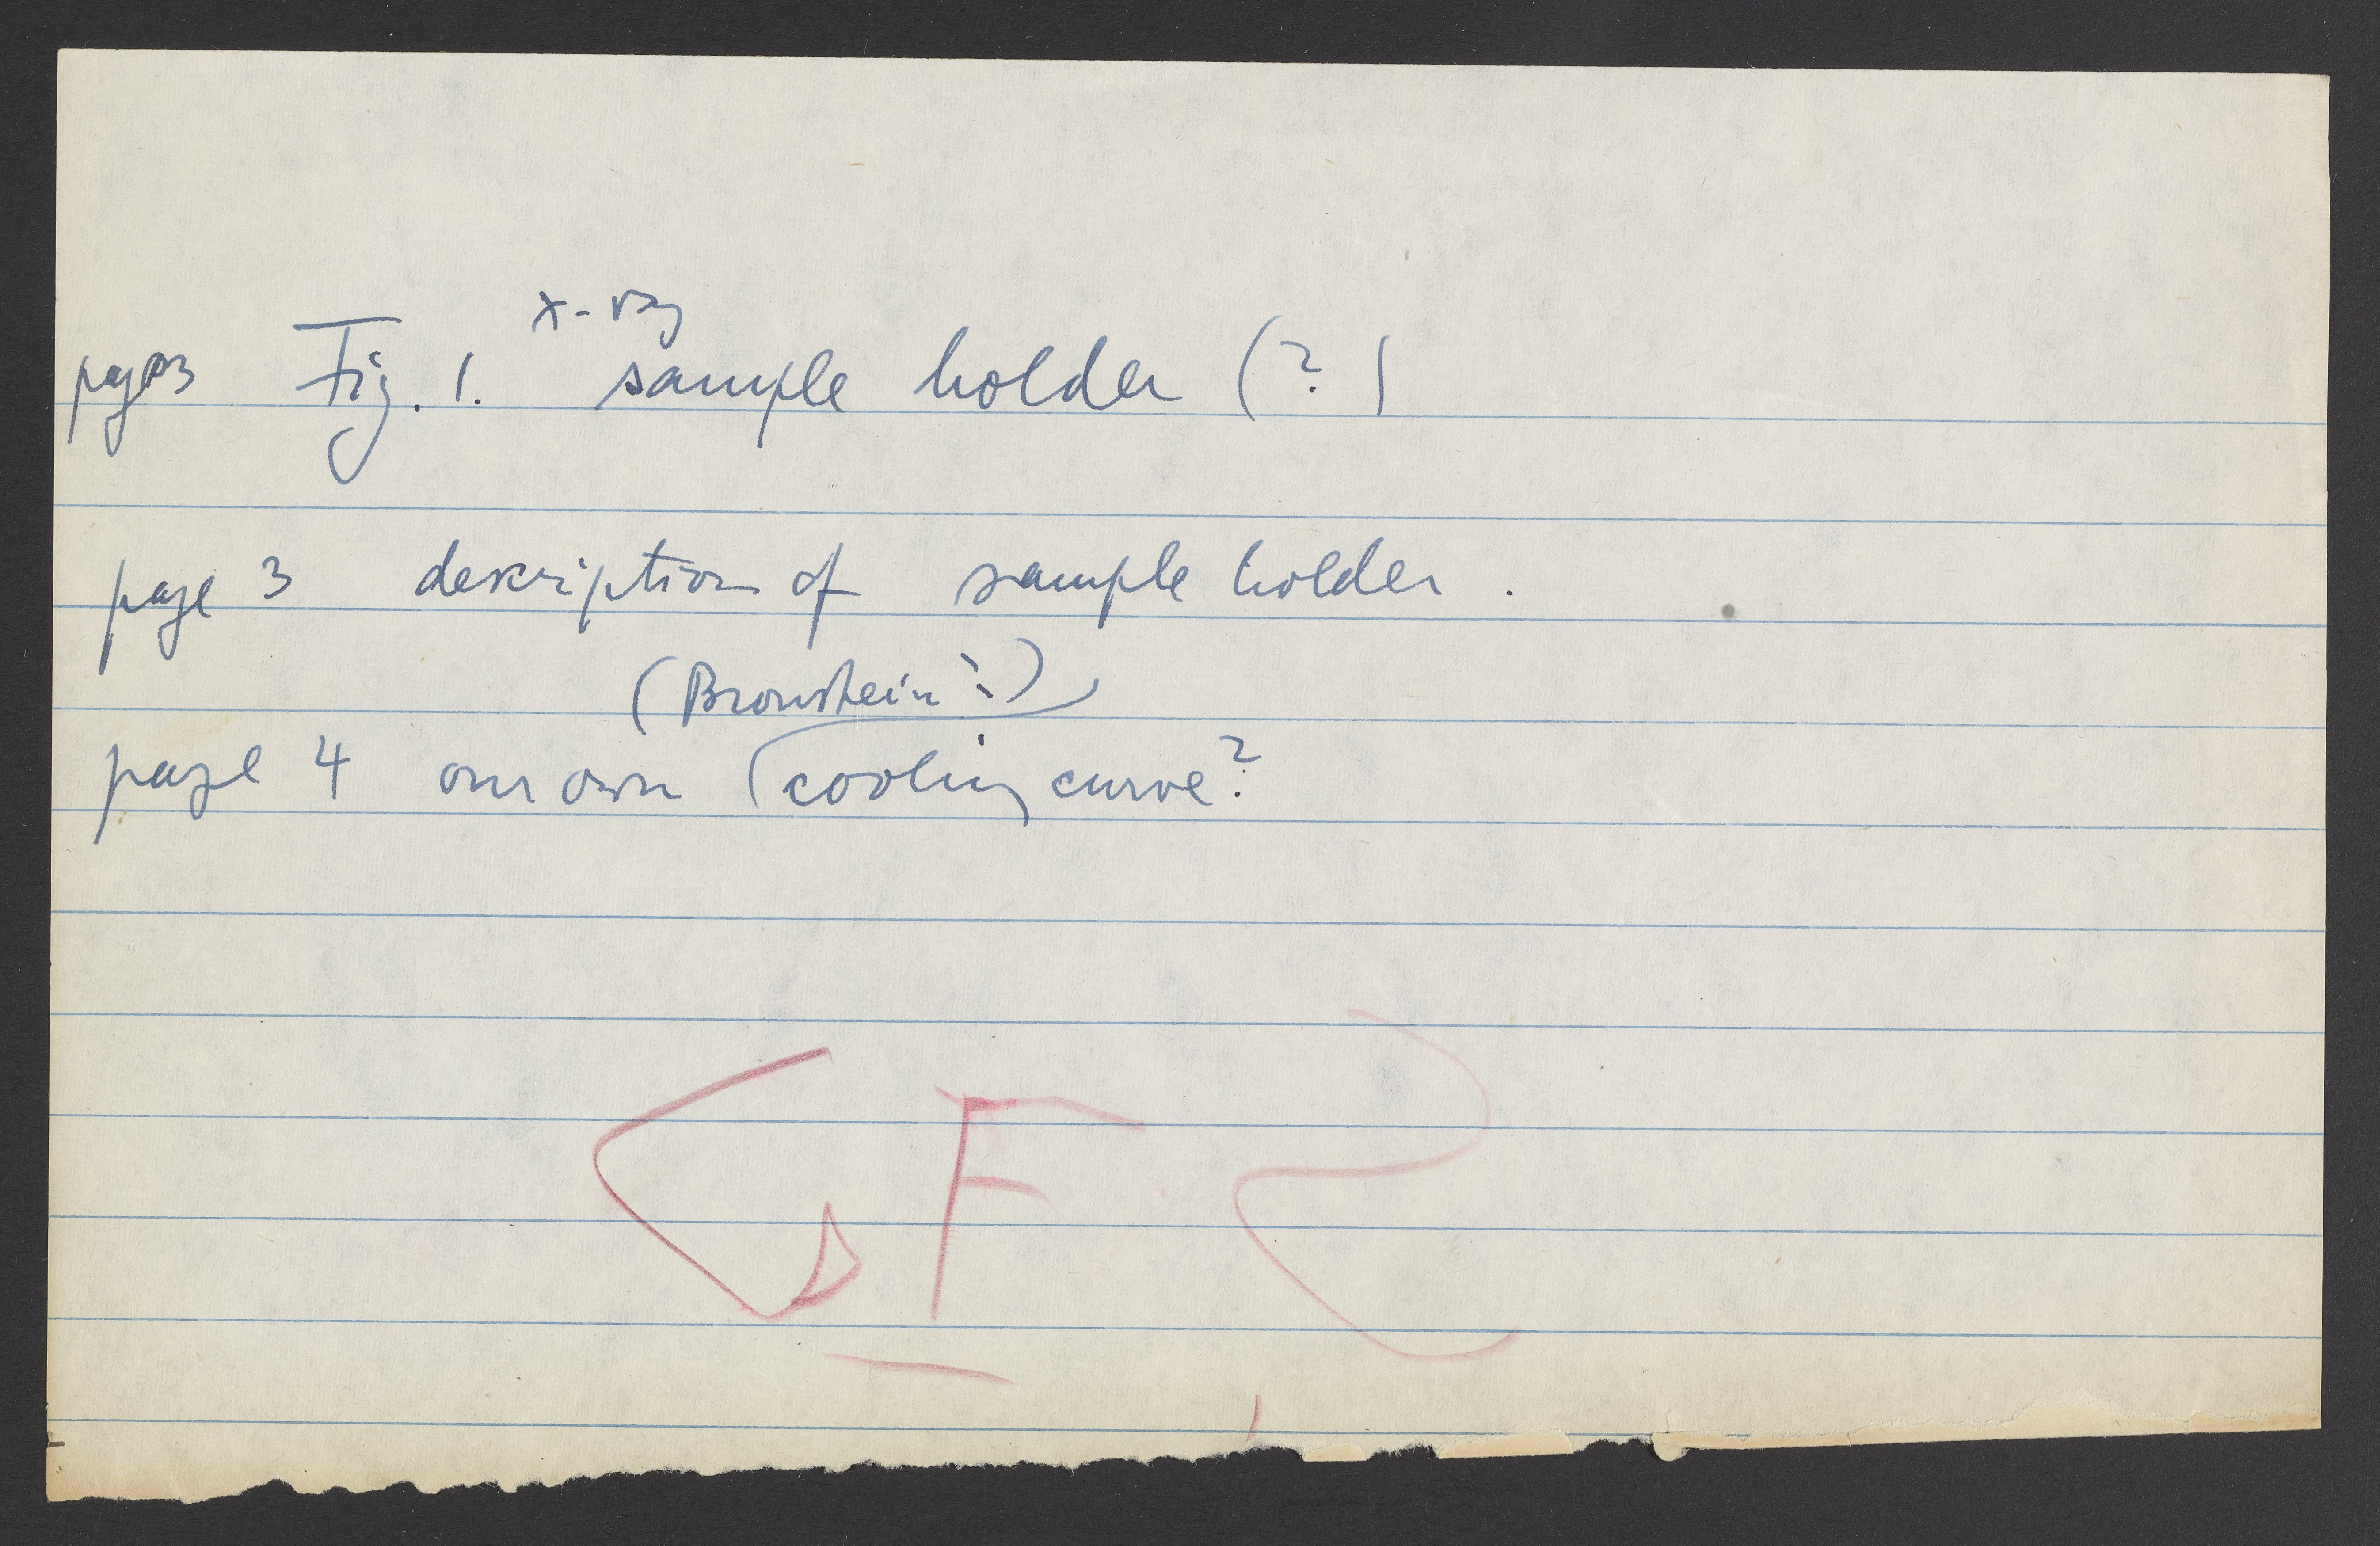 page 3 Fig. 1. x-ray sample holder (?)
page 3 deskription of sample holder.
(Bronstein?)
page 4 our own (cooling curve?
GF 2